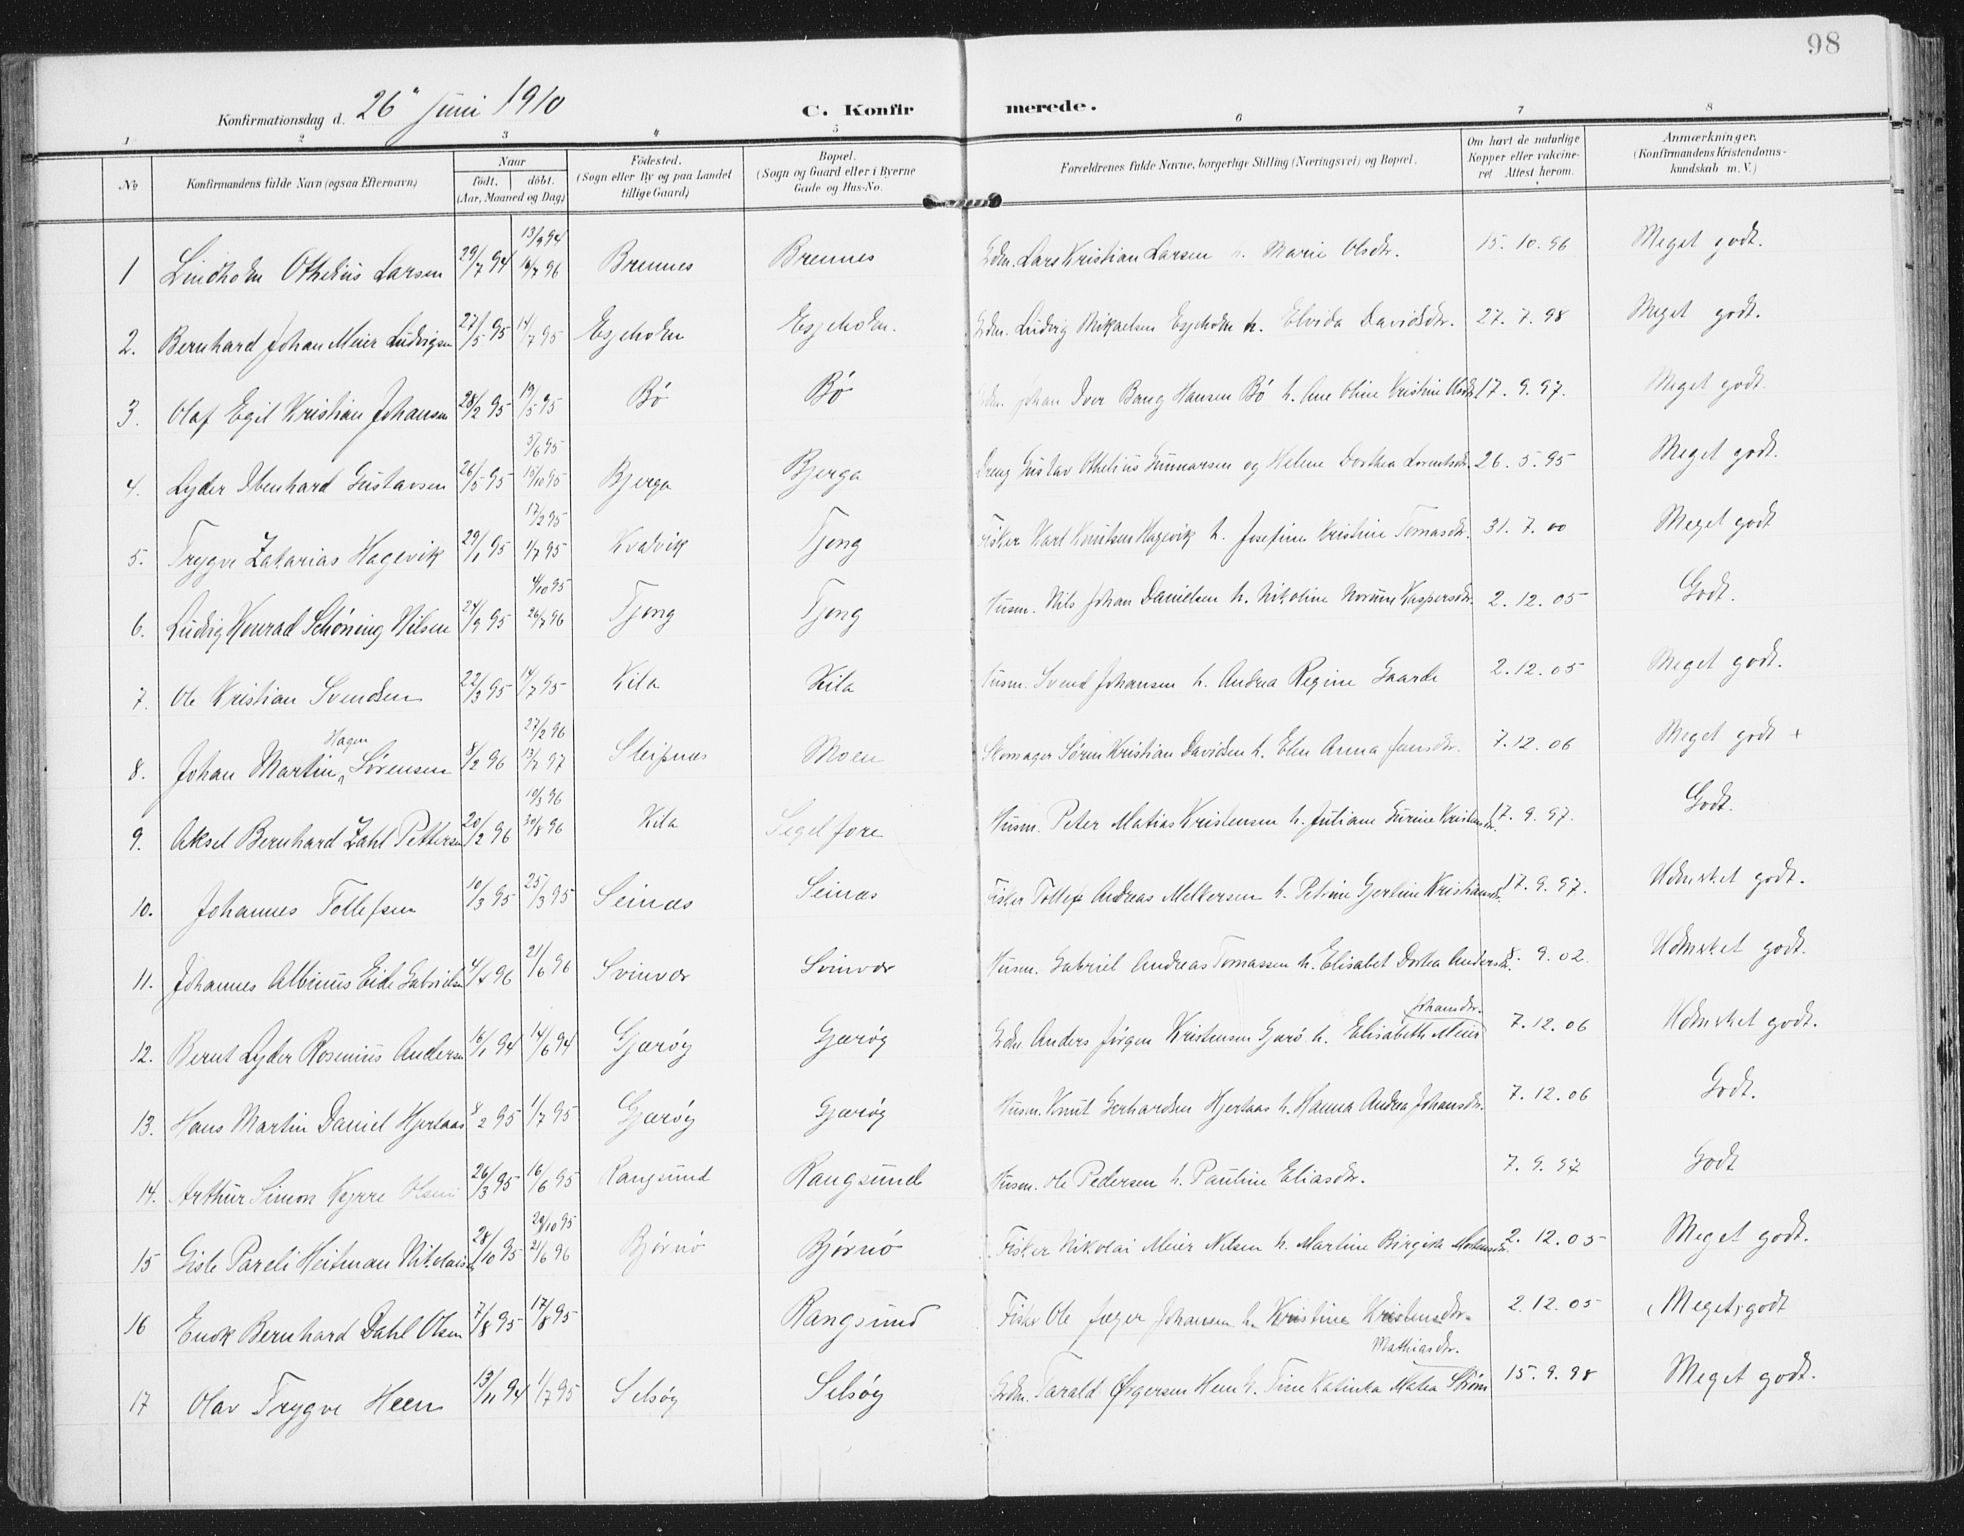 98
Konfirmationsdag d. 26 Juni 1910
C. Konfirmerede.
1 2 3 4 5 6 7 8
No
Konfirmandens fulde Navn (ogsaa Efternavn)
Naar
Födt. döbt.
(Aar, Maaned og Dag)
Födested.
(Sogn eller By og paa Landet
tillige Gaard)
Bopæl.
(Sogn og Gaard eller i Byerne
Gade og Hus-No.
Forældrenes fulde Navne, borgerlige Stilling (Næringsvei) og Bopæl.
Om havt de naturlige
Kopper eller vakcine-
ret Attest herom.
Anmærkninger.
(Konfirmandens Kristendoms-
kundskab m. V.)
13/9 94
1 Lindholm Othelius Larsen 29/7 94 14/7 96 Brennes Brennes Gdm. Lars Kristian Larsen h. Marie Olsdr. 15.10.96 Meget godt.
2. Bernhard Johan Meier Ludvigsen 27/5 95 14/7 95 Esjeholm Esjeholm. Gdm. Ludvig Mikaelsen Esjeholm h. Elvida Davidsdr. 27.7.98 Meget godt.
3. Olaf Egil Kristian Johansen 28/2 95 19/5 95 Bó Bó Gdm. Johan Iver Bang Hansen Bó h. Ane Oline Kristine Olsdr. 17.9.97. Meget godt.
5/6 95
4. Lyder Ibenhard Gustavsen 26/5 95 15/10 95 Bjerga Bjerga Dreng Gustav Othelius Gunnarsen og Helene Dorthea Lorentsdr. 26.5.95 Meget godt.
17/2 95
5. Trygve Zakarias Hagevik 29/1 95 1/7 95 Kvalvik Tjong Fisker Karl Knutsen Hagevik h. Josefine Kristine Tomasdr. 31.7.00 Meget godt
4/10 95
6. Ludvig Konrad Schöning Nilsen 24/9 95 26/7 96 Tjong Tjong Husm. Nils Johan Danielsen h. Nikoline Norum Kaspersdr. 2.12.05 Godt.
7. Ole Kristian Svendsen 22/3 95 14/7 95 Kila Kila Husm. Svend Johansen h. Andrea Regine Gaarde 2.12.05 Meget godt.
Hagen 27/2 96
8. Johan Martin Sörensen 8/2 96 13/7 97 Sleipnes Moen Skomager Sörin Kristian Davidsen h. Elen Anna Jensdr. 7.12.06 Meget godt +
19/3 96
9. Aksel Bernhard Zahl Pettersen 20/2 96 30/8 96 Kila Segelfore Husm. Peter Matias Kristensen h. Juliane Gurine Kristensdr. 17.9.97. Godt.
10. Johannes Tollefsen 10/3 95 25/3 95 Seinæs Seinæs Fisker Tollef Andreas Melkersen h. Petrine Gjertine Kristiansdr. 17.9.97. Udmerket godt.
11. Johannes Albinus Eide Gabrielsen 4/4 96 21/6 96 Svinvær Svinvær Husm. Gabriel Andreas Tomassen h. Elisabet Dortea Andersdr. 8.9.02. Udmerket godt.
Johansdr.
12. Bernt Lyder Rosenius Andersen 16/1 94 14/6 94 Gjæröy Gjæröy Gdm Anders Jörgen Kristensen Gjærö h. Elisabeth Meier 7.12.06 Udmerket godt.
13. Hans Martin Daniel Hjertaas 8/2 95 1/7 95 Gjæröy Gjæröy Husm. Knut Gerhardsen Hjertaas h. Hanna Andrea Johansdr. 7.12.06 Godt.
14. Arthur Simon Kyrre Olsen 26/3 95 16/6 95 Rangsund Rangsund Husm. Ole Pedersen h. Pauline Eliasdr. 7.9.97 Godt
29/10 95
15 Gisle Pareli Heitman Nikolaisen 28/10 95 21/6 96 Bjørnö Bjørnö Fisker Nikolai Meier Nilsen h. Martine Birgitte Mortensdr. 2.12.05 Meget godt.
16 Enok Bernhard Dahl Olsen 7/8 95 17/8 95 Rangsund Fisker Ole Jæger Johansen h. Kristine Kristensdr. 2.12.05 (Meget) godt
Mathiasdr.
17 Olav Trygve Heen 13/11 94 1/7 95 Selsöy Selsöy Gdm. Tarald Örgersen Heen h. Tine Katinka Matea Ström 15.9.98 Meget godt.